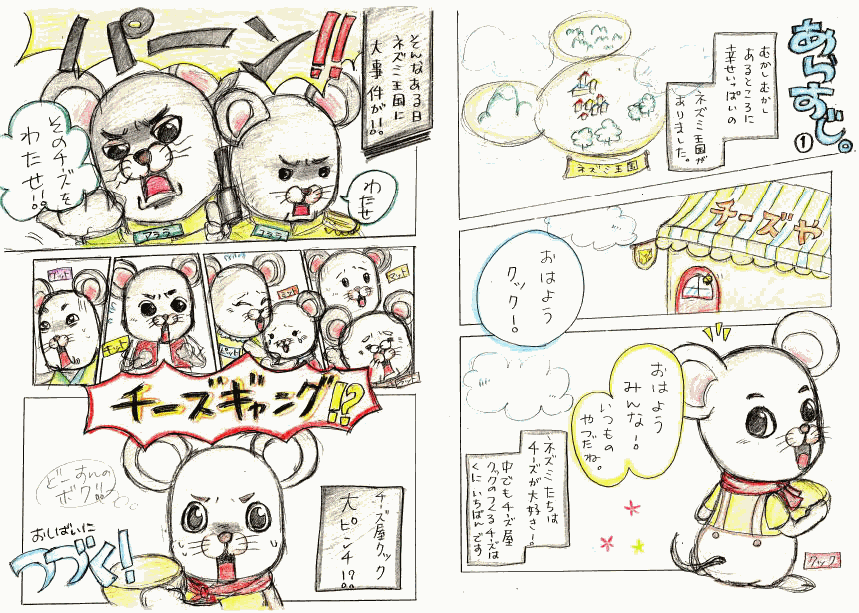 あらすじ。
①
むかしむかし
あるところに
幸せいっぱいの
ネズミ王国が
ありました。
ネズミ王国
チーズや
おはよう
クック!
おはよう
みんな!
いつもの
やつだね。
ネズミたちは
チーズが大好き!
中でもチーズ屋
クックのつくるチーズは
くにいちばんです
クック
そんなある日
ネズミ王国に
大事件が!!
バーン!!
そのチーズを
わたせ!!
わたせ
アララ
コララ
マット
ミント
チット
チーズギャング!?
チーズ屋クック
大ピンチ!?
どーすんの
ボク!!
おしばいに
つづく!